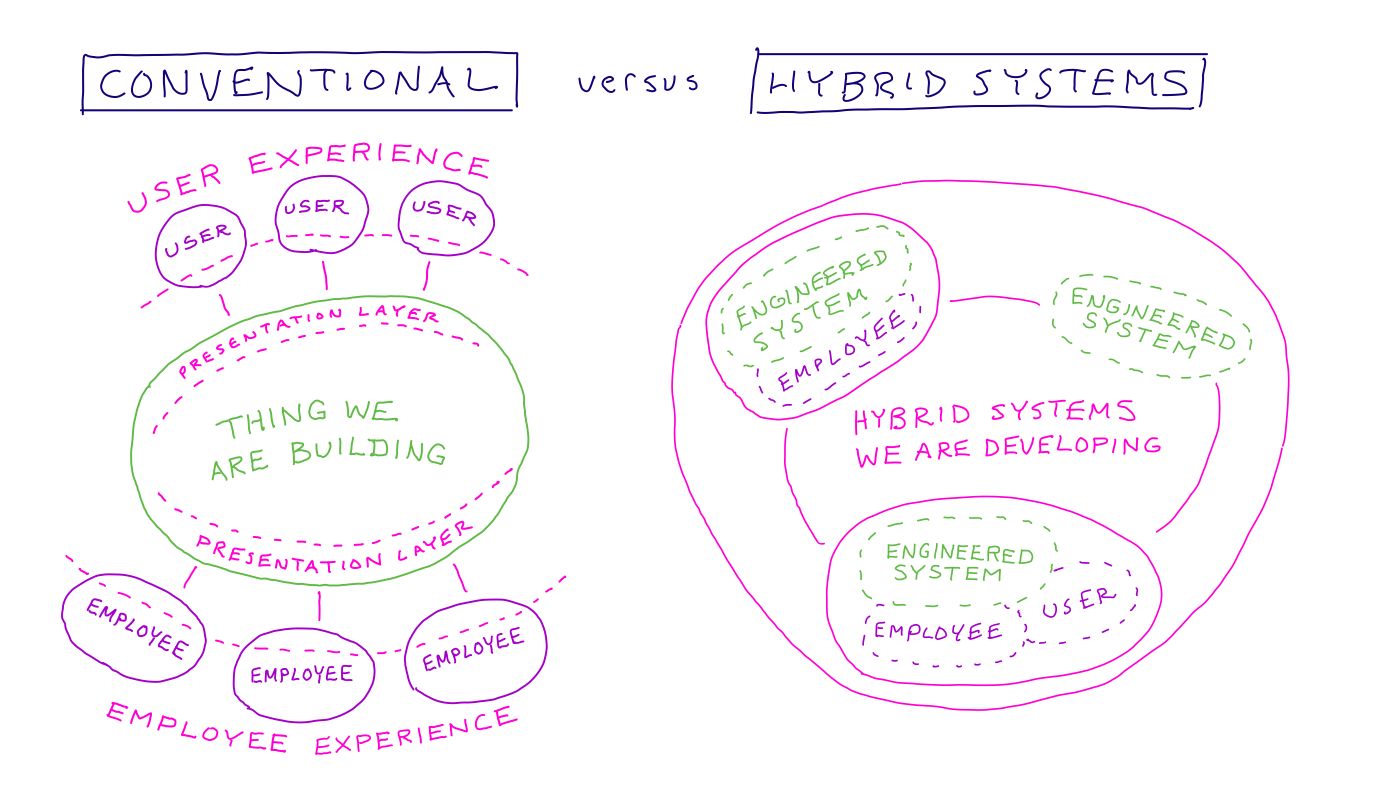 CONVENTIONAL versus HYBRID SYSTEMS
USER EXPERIENCE
USER
USER
USER
PRESENTATION LAYER
THING WE
ARE BUILDING
PRESENTATION LAYER
EMPLOYEE
EMPLOYEE
EMPLOYEE
EMPLOYEE EXPERIENCE
ENGINEERED
SYSTEM
EMPLOYEE
ENGINEERED
SYSTEM
HYBRID SYSTEMS
WE ARE DEVELOPING
ENGINEERED
SYSTEM
EMPLOYEE
USER